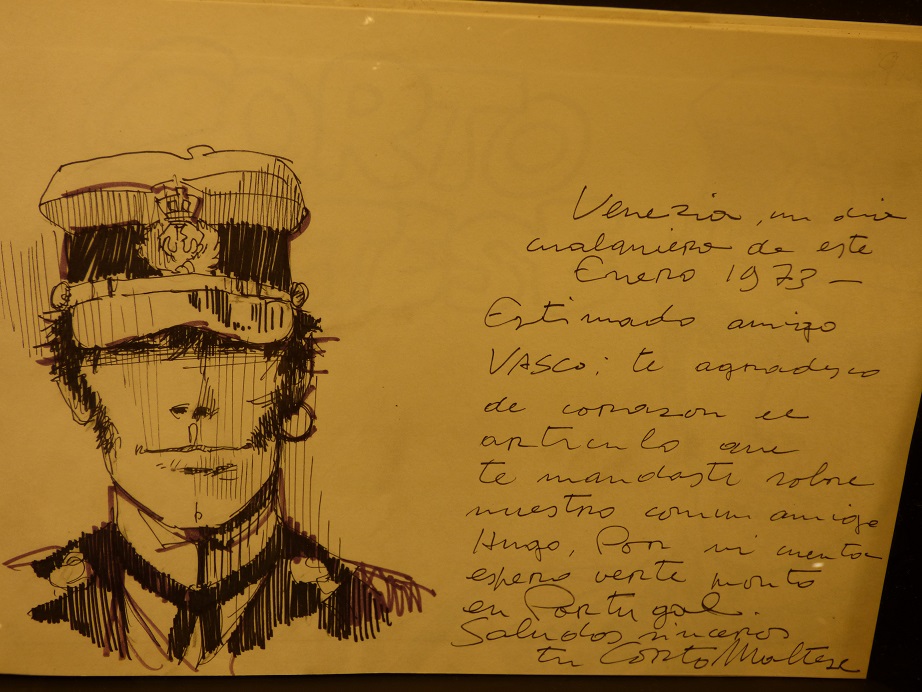 Venezia, un dia
cualquiera de este
Enero 1973 —
Estimado amigo
VASCO: te agradesco
de corazon el
articulo que
te mandaste sobre
nuestro comun amigo
Hugo, Por mi cuenta
espero verte pronto
en Portugal.
Saludos sinceros
tu Corto Maltese